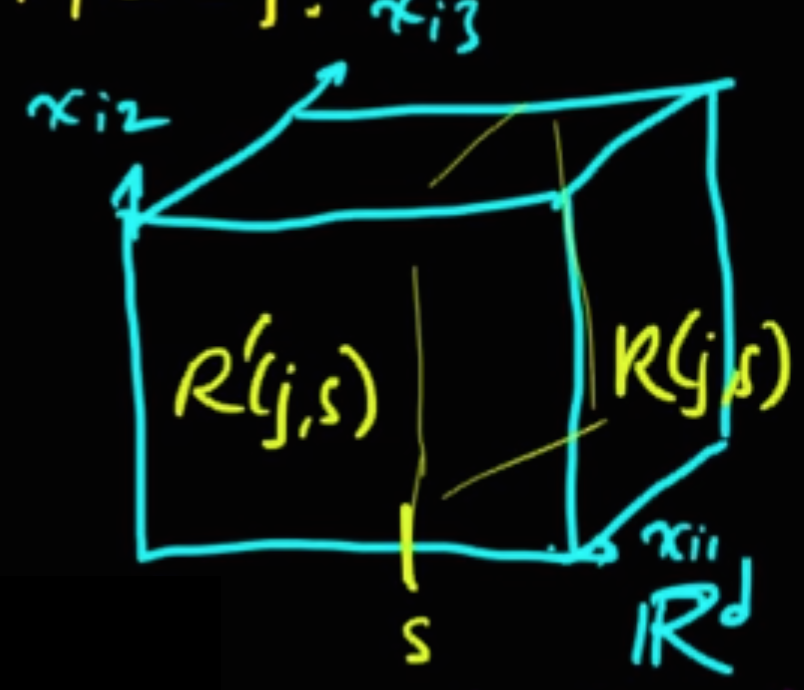 x_{i3}
x_{i2}
R'(j,s)
R(j,s)
x_{i1}
s
ℝ^d